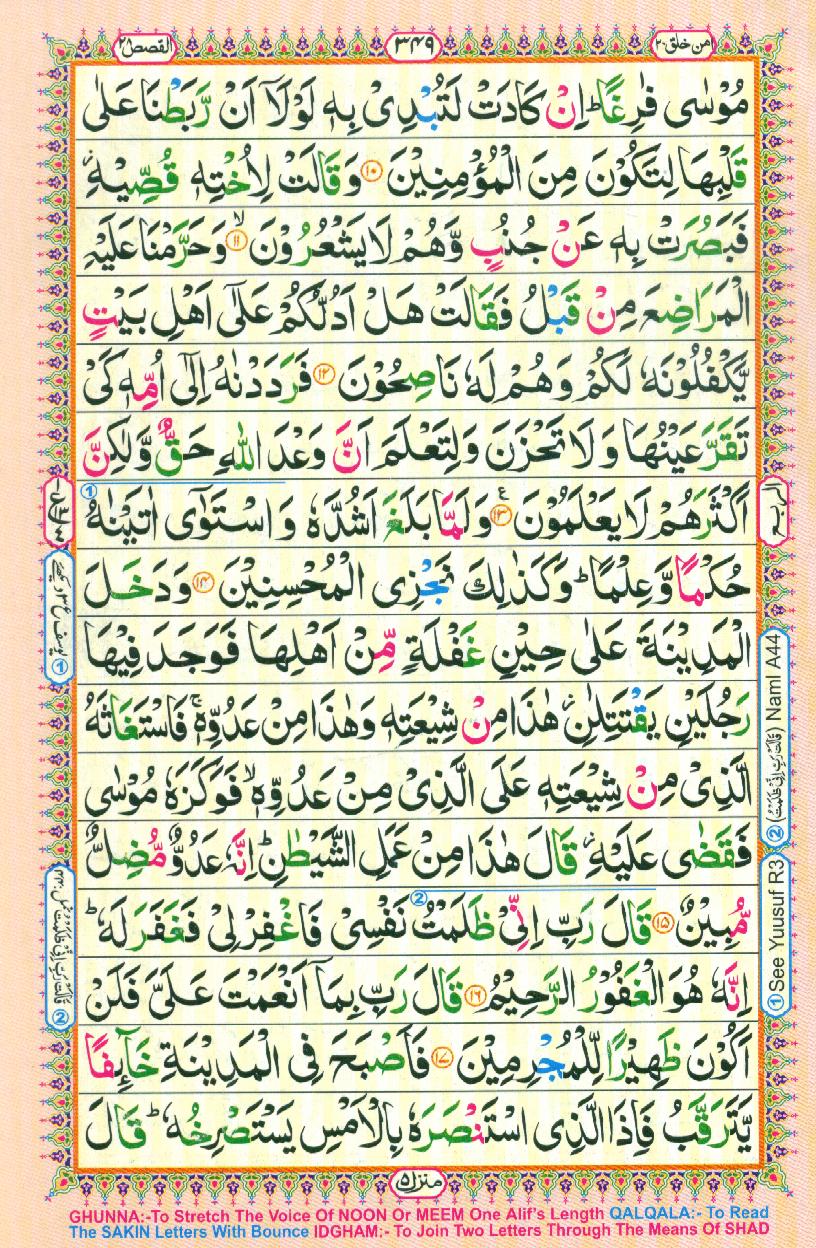 القصص ٢٨
٣٤٩
من خلق ٢٠
مُوۡسٰى فٰرِغًا‌ ؕ اِنۡ كَادَتۡ لَتُبۡدِىۡ بِهٖ لَوۡلَاۤ اَنۡ رَّبَطۡنَا عَلٰى
قَلۡبِهَا لِتَكُوۡنَ مِنَ الۡمُؤۡمِنِيۡنَ ۝۱۰ وَقَالَتۡ لِاُخۡتِهٖ قُصِّيۡهِ‌ ۫
فَبَصُرَتۡ بِهٖ عَنۡ جُنُبٍ وَّهُمۡ لَا يَشۡعُرُوۡنَ ۙ‏ ۝۱۱ وَحَرَّمۡنَا عَلَيۡهِ
الۡمَرَاضِعَ مِنۡ قَبۡلُ فَقَالَتۡ هَلۡ اَدُلُّكُمۡ عَلٰٓى اَهۡلِ بَيۡتٍ
يَّكۡفُلُوۡنَهٗ لَـكُمۡ وَهُمۡ لَهٗ نَاصِحُوۡنَ ۝۱۲ فَرَدَدۡنٰهُ اِلٰٓى اُمِّهٖ كَىۡ
تَقَرَّ عَيۡنُهَا وَلَا تَحۡزَنَ وَلِتَعۡلَمَ اَنَّ وَعۡدَ اللّٰهِ حَقٌّ وَّلٰـكِنَّ
اَكۡثَرَهُمۡ لَا يَعۡلَمُوۡنَ ۝۱۳ ع وَلَمَّا بَلَغَ اَشُدَّهٗ وَاسۡتَوٰٓى اٰتَيۡنٰهُ ①
حُكۡمًا وَّعِلۡمًا‌ ؕ وَكَذٰلِكَ نَجۡزِى الۡمُحۡسِنِيۡنَ ۝۱۴ وَدَخَلَ
الۡمَدِيۡنَةَ عَلٰى حِيۡنِ غَفۡلَةٍ مِّنۡ اَهۡلِهَا فَوَجَدَ فِيۡهَا
رَجُلَيۡنِ يَقۡتَتِلٰنِ ۫ هٰذَا مِنۡ شِيۡعَتِهٖ وَهٰذَا مِنۡ عَدُوِّهٖ‌ ۚ فَاسۡتَغَاثَهُ
الَّذِىۡ مِنۡ شِيۡعَتِهٖ عَلَى الَّذِىۡ مِنۡ عَدُوِّهٖ ۙ فَوَكَزَهٗ مُوۡسٰى
فَقَضٰى عَلَيۡهِ‌ ۫ قَالَ هٰذَا مِنۡ عَمَلِ الشَّيۡطٰنِ‌ ؕ اِنَّهٗ عَدُوٌّ مُّضِلٌّ
مُّبِيۡنٌ ۝۱۵ قَالَ رَبِّ اِنِّىۡ ظَلَمۡتُ ② نَفۡسِىۡ فَاغۡفِرۡ لِىۡ فَغَفَرَ لَهٗ‌ ؕ
اِنَّهٗ هُوَ الۡغَفُوۡرُ الرَّحِيۡمُ ۝۱۶ قَالَ رَبِّ بِمَاۤ اَنۡعَمۡتَ عَلَىَّ فَلَنۡ
اَكُوۡنَ ظَهِيۡرًا لِّلۡمُجۡرِمِيۡنَ ۝۱۷ فَاَصۡبَحَ فِى الۡمَدِيۡنَةِ خَآئِفًا
يَّتَرَقَّبُ فَاِذَا الَّذِى اسۡتَـنۡصَرَهٗ بِالۡاَمۡسِ يَسۡتَصۡرِخُهٗ‌ ؕ قَالَ
الربع
② (قَالَتْ رَبِّ اِنِّىْ ظَلَمْتُ) Naml A44
① See Yuusuf R3
منزل ۵
GHUNNA:-To Stretch The Voice Of NOON Or MEEM One Alif's Length QALQALA:- To Read
The SAKIN Letters With Bounce IDGHAM:- To Join Two Letters Through The Means Of SHAD